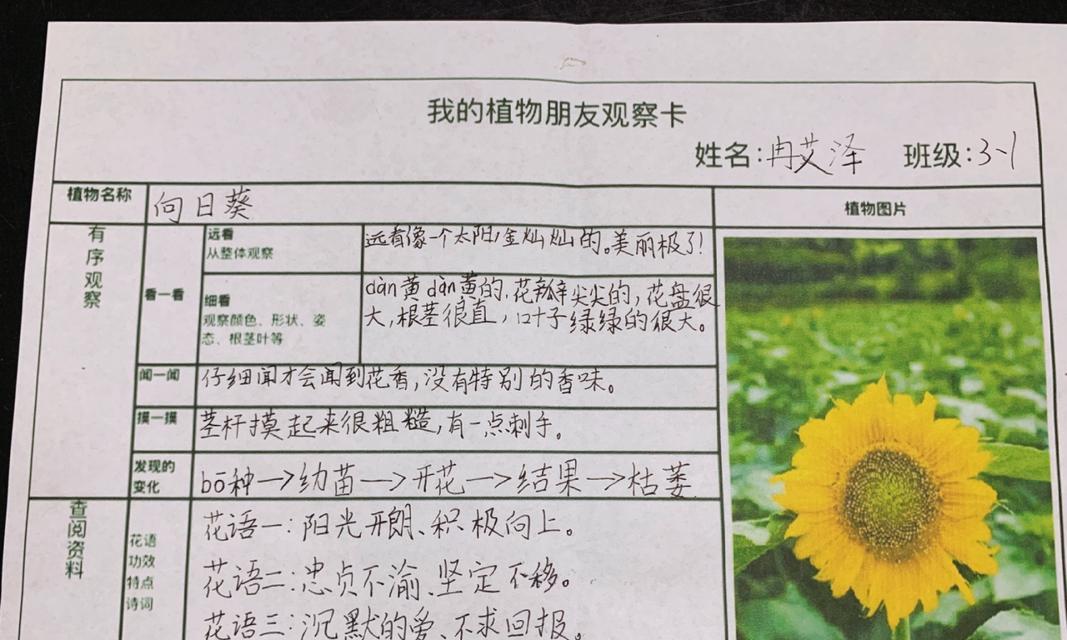 我的植物朋友观察卡
姓名:冉艾泽 班级:3-1
植物名称 向日葵 植物图片
有序观察
看一看
远看
从整体观察
远看像一个太阳,金灿灿的。美丽极了!
细看
观察颜色、形状、姿
态、根茎叶等
dàn黄dàn黄的,花瓣尖尖的,花盘很
大,根茎很直,叶子绿绿的很大。
闻一闻 仔细闻才会闻到花香,没有特别的香味。
摸一摸 茎杆摸起来很粗糙,有一点刺手。
发现的
变化
bō种→幼苗→开花→结果→枯萎
查阅资料
花语
功效
特点
诗词
花语一:阳光开朗、积极向上。
花语二:忠贞不渝、坚定不移。
花语三:沉默的爱、不求回报。